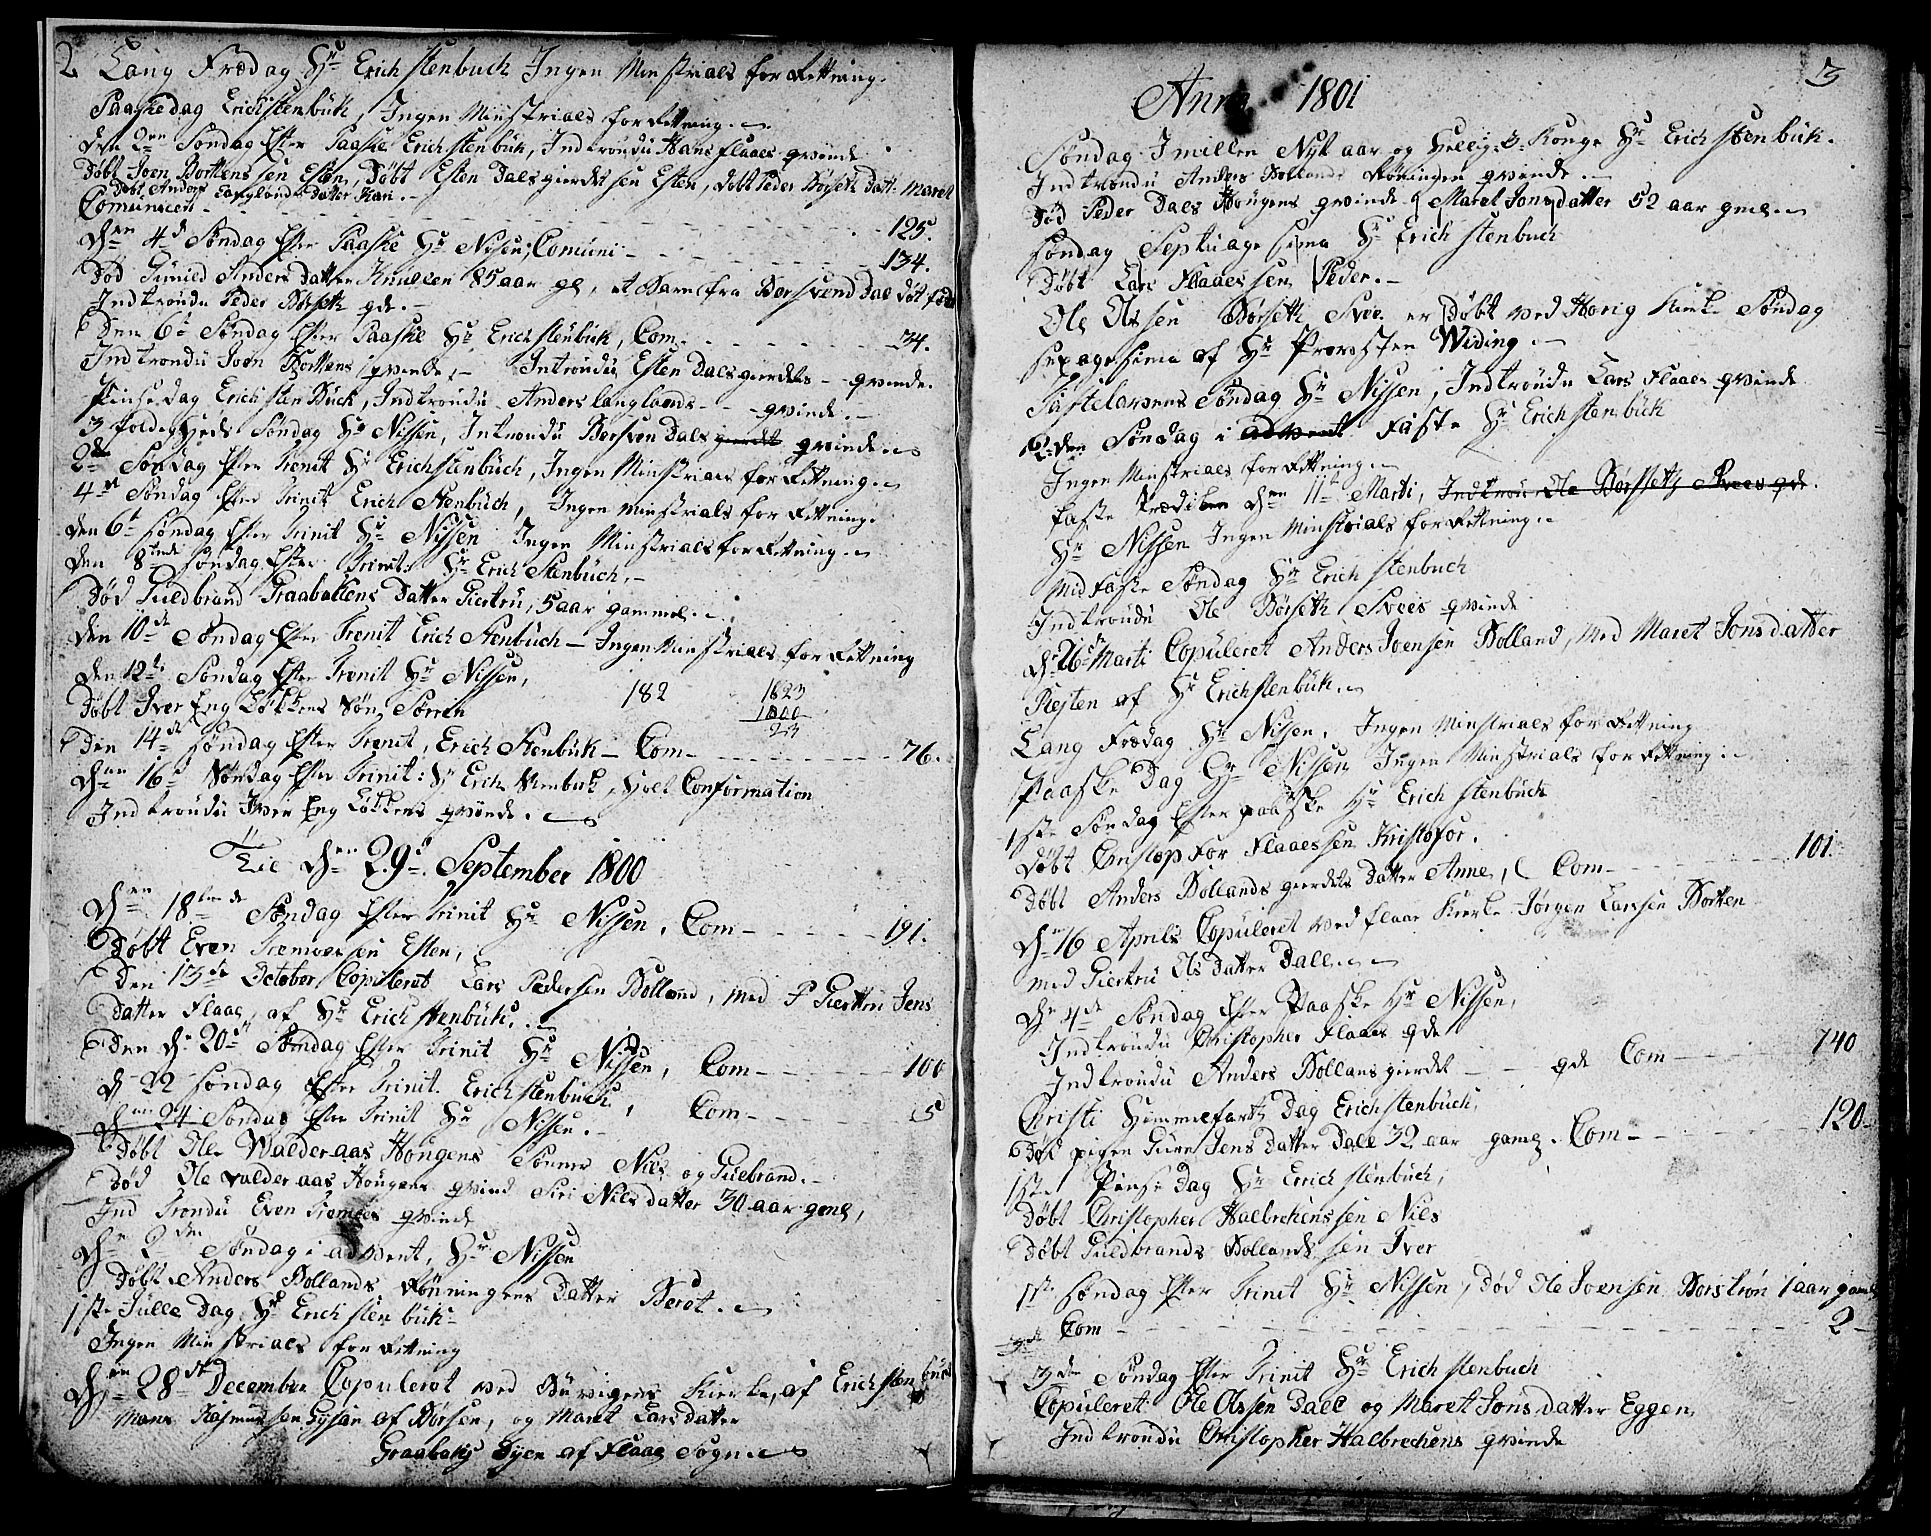 2 Lang Fredag Hr Erich Stenbuch Ingen Minstrials forRettning.
Paaskedag Erich Stenbük, Ingen Minstrials forRettning.
den 2en Søndag Efter Paaske Erich Stenbük, Introndu Hans Flaaes qvinde
Døbt Joen Bortens sen Esten, Døbt Esten Dalsgierdes sen Esten, døbt Peder Børsets Datt. Maret
Døbt Anders Langlands Datter Kari.
Comunicen - - - 125.
Den 4de Søndag Efter Paaske Hr Nissen, Comuni - - - 134.
Død Gunild Anders Datter 85 aar gl, et Barn fra Borsvend Dal døt fød
Indtrondu Peder Børseth qde.
Den 6te Søndag Efter Paaske Hr Erich Stenbük, Com. - - - 34.
Indtrondu Joen Bortens qvinde, - Introndu Esten Dalsgierdets - qvinde.
Pinse dag Erich Sten Buck, Indtrondu Anders langlands - - qvinde.
3 foldigheds Søndag Hr Nissen, Introndu Bersven Dals gierdet qvinde.
2den Søndag Efter Trenit Hr Erichstenbuch, Ingen Minstriaes forRettning.
4de Søndag Efter Trinit Erich Stenbuch, Ingen minstrials forRettning.
den 6te Søndag Efter Trinit Hr Nissen Ingen Minstrials forRettning.
den 8tende Søndag Efter Trinit: Hr Erich Stenbuch.
Død Guldbrand Graabakens Datter Giertru, 5 aar gammel.
den 10de Søndag Efter Trenit Erich Stenbuch - Ingen Minstriaes forRettning
den 12te Søndag Efter Trenit Hr Nissen, 182 1823
Døbt Iver Eng Løkkens Søn Sørren 1800
23
den 14de Søndag Efter Trenit, Erich Stenbük - Com - - - 76.
Den 16de Søndag Efter Trinit: Hr Erich Stenbuk, holt Conformation
Indtrondu Iver Eng Løkkens qvinde.
Til Den 29de September 1800
Den 18tende Søndag Efter Trinit Hr Nissen, Com - - - 191.
Døbt Even sen Esten,
Den 13de October Copuleret Lars Pedersen Bolland, med P Giertru Jens
datter Flaae, af Hr Erich Stenbük.
Den d. 20de Søndag Efter Trinit Hr Nissen, Com - - - 100
d 22 Søndag Efter Trinit. Erichstenbuch,
Den 24 Søndag Efter Trinit Hr Nissen. Com - - - 5
Døbt Ole Walderaas Hougens Sønner Nils og Gulbrand.
Død Ole valderaas Hougens qvind Siri Nilsdatter 30 aar gml,
Ind Trondu Even qvinde
Den 2den Søndag i advent, Hr Nissen
Døbt Anders Bollands Rønningens Datter Berot.
1ste Julle Dag Hr Erich Stenbük
Ingen Minstriaels forRettning
Den 28de December Copuleret ved Büvigens Kierke, af Erichstenbuk
Mons Rasmussen af Børsen, og Maret Larsdatter
Graabaks Eyen af Flaae Sogn.
3
Anno 1801
Søndag Imillen Nyt aar og Hellig 3 Konge Hr Erich Stenbük.
Indtrondu Anders Bollands Rønningen qvinde.
Død Peder Daes Hougens qvinde Maret Jonsdatter 52 aar gml.
Søndag Septuagesima Hr Erich Stenbuch
Døbt Lars Flaaes sen Peder.
Ole Olssen Børseth Svee er Døbt ved Horig Kirke Søndag
sexagesima af Hr Provsten Widing.
Fastelavens Søndag Hr Nissen, Indtrondu Lars Flaaes qvinde
2den Søndag i advent Faste Hr Erichstenbük
Ingen Minstriaels forRettning.
faste Prædiken den 11te Marti, Indtron Ole Børseth Svees qde.
Hr Nissen Ingen Minstrials forRettning.
Midfaste Søndag Hr Erich Stenbuch
Indtrondu Ole Børseth Svees qvinde
d. 26de Marti Copuleret Anders Joensen Bolland, med Maret Jonsdatter
Plejten af Hr Erichstenbük.
Lang Fredag Hr Nissen, Ingen Minstriaels forRettning
Paaske Dag Hr Nissen Ingen Minstrials forRettning.
1ste Søndag Efter paaske Hr Erich Stenbuch
Døbt Christopfor Flaaessen Kristofor.
Døbt Anders Bollands gierdets Datter Anne, Com - - - 101.
Den 16 Aprils Copuleret ved Flaae Kierke Jørgen Larssen Borten
med Giertru Olsdatter Dall.
den 4de Søndag Efter Paaske Hr Nissen,
Indtrondu Christopher Flaaes qde
Indtrondu Anders Bollans gierdet - - qde Com - - - 140
Christi Himmelfarts Dag Erich Stenbuch,
Død pigen Guru Jensdatter Dall 32 aar gaml. Com - - - 120
1ste Pinse Dag Hr Erich Stenbuch,
Døbt Christopher Halbrekens sen Nils
Døbt Guldbrands Bollands sen Iver
1ste Søndag Efter Trinit Hr Nissen, Død Ole Joensen Borstrøn 1 aar gaml
Com - - - 2
3de Søndag Efter Trinit Hr Erich Stenbuch
Copuleret Ole Olssen Dall og Maret Jonsdatter Eggen
Indtrondu Christopher Halbrechens qvinde